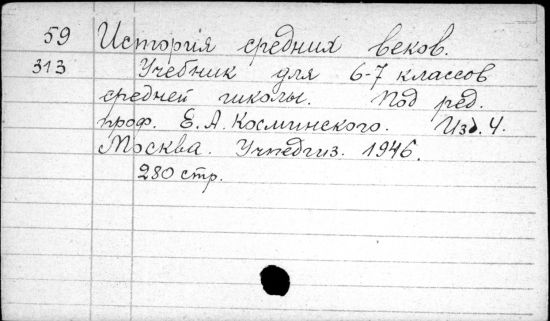 59 История средних веков.
313 Учебник для 6-7 классов
средней школы. Под ред.
проф. Е.А. Косминского. Изд. 4.
Москва. Учпедгиз. 1946.
280 стр.